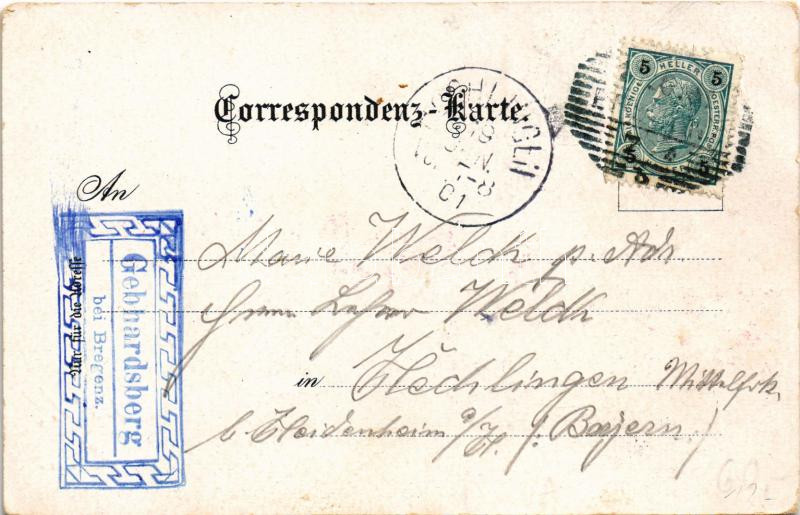 Correspondenz-Karte.
5 HELLER 5
An
Marie Welck p. Adr.
Herrn Lehrer Welck
in Hechlingen Mittelfrk.
b. Heidenheim a/H. (Bayern)
Nur für die Adresse
Gebhardsberg
bei Bregenz.
JUN.
7-8
01